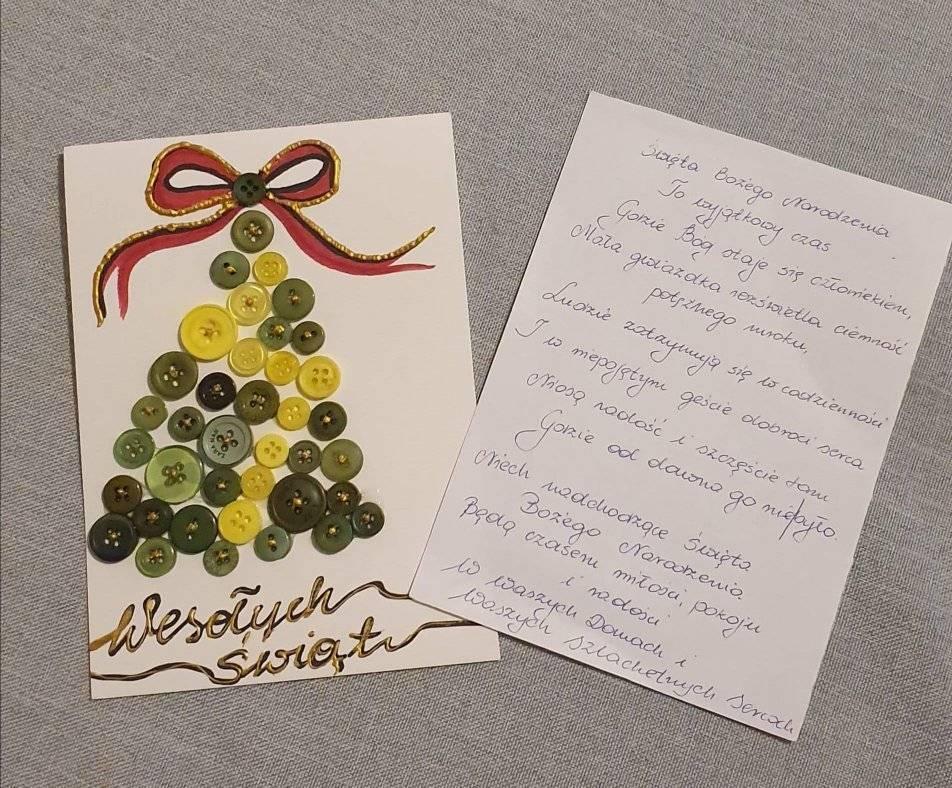 Wesołych
Świąt
Święta Bożego Narodzenia
To wyjątkowy czas
Gdzie Bóg staje się człowiekiem,
Mała gwiazdka rozświetla ciemność
potężnego mroku,
Ludzie zatrzymują się w codzienności
I w niepojętym geście dobroci serca
Niosą radość i szczęście tam
Gdzie od dawna go nie było.
Niech nadchodzące Święta
Bożego Narodzenia
Będą czasem miłości, pokoju
i radości
W Waszych Domach i
Waszych szlachetnych sercach